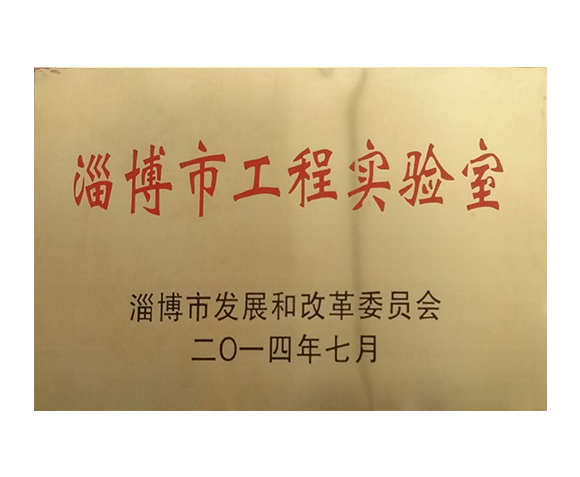 淄博市工程实验室
淄博市发展和改革委员会
二〇一四年七月